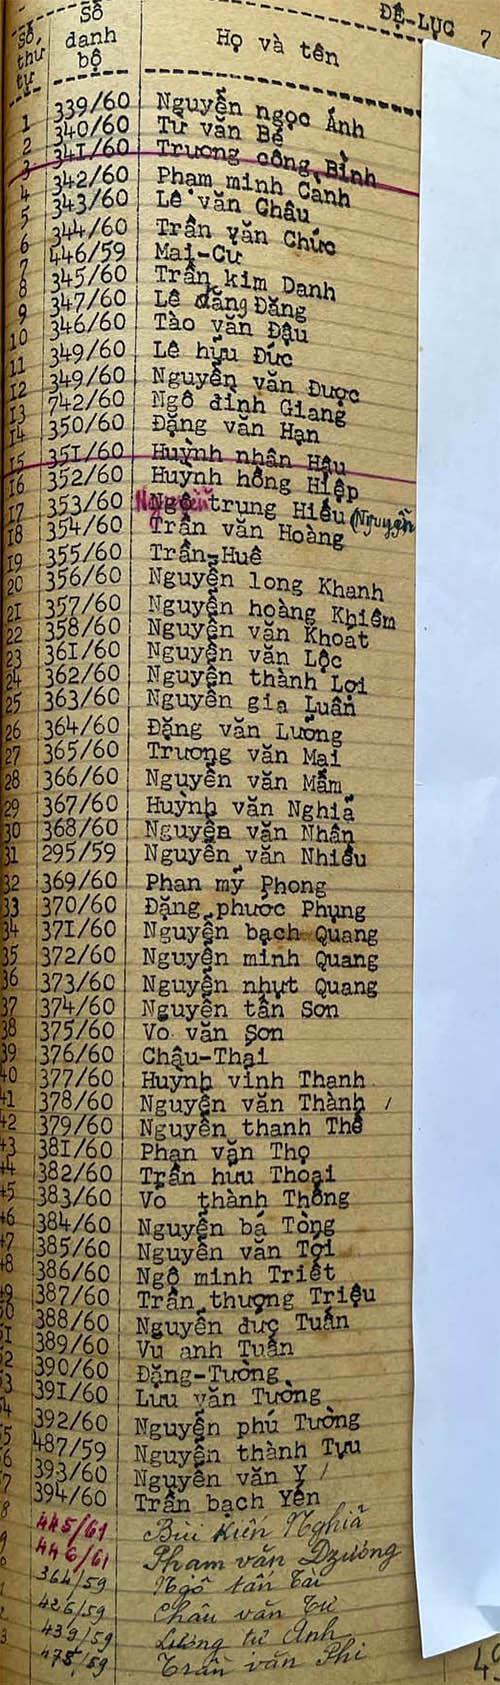 ĐỆ-LỤC 7
Số thứ tự Số danh bộ Họ và tên
1 339/60 Nguyễn ngọc Ánh
2 340/60 Từ văn Bê
3 341/60 Trương công Bình
4 342/60 Phạm minh Cảnh
5 343/60 Lê văn Châu
6 344/60 Trần văn Chức
7 446/59 Mai-Cư
8 345/60 Trần kim Danh
9 347/60 Lê đăng Đăng
10 346/60 Tào văn Đậu
11 349/60 Lê hữu Đức
12 349/60 Nguyễn văn Được
13 742/60 Ngô đình Giang
14 350/60 Đặng văn Hạn
15 351/60 Huỳnh nhân Hậu
16 352/60 Huỳnh hồng Hiệp
17 353/60 Nguyễn Ngô trung Hiếu (Nguyễn
18 354/60 Trần văn Hoàng
19 355/60 Trần-Huê
20 356/60 Nguyễn long Khanh
21 357/60 Nguyễn hoàng Khiêm
22 358/60 Nguyễn văn Khoát
23 361/60 Nguyễn văn Lộc
24 362/60 Nguyễn thành Lợi
25 363/60 Nguyễn gia Luân
26 364/60 Đặng văn Lường
27 365/60 Trương văn Mai
28 366/60 Nguyễn văn Mẫm
29 367/60 Huỳnh văn Nghĩa
30 368/60 Nguyễn văn Nhân
31 295/59 Nguyễn văn Nhiều
32 369/60 Phan mỹ Phong
33 370/60 Đặng phước Phụng
34 371/60 Nguyễn bạch Quang
35 372/60 Nguyễn minh Quang
36 373/60 Nguyễn nhựt Quang
37 374/60 Nguyễn tấn Sơn
38 375/60 Vo văn Sơn
39 376/60 Châu-Thại
40 377/60 Huỳnh vinh Thanh
41 378/60 Nguyễn văn Thành /
42 379/60 Nguyễn thanh Thế
43 381/60 Phan văn Thọ
44 382/60 Trần hưu Thoại
45 383/60 Vo thành Thông
46 384/60 Nguyễn bá Tòng
47 385/60 Nguyễn văn Tợi
48 386/60 Ngô minh Triết
49 387/60 Trần thượng Triệu
50 388/60 Nguyễn đức Tuấn
51 389/60 Vu anh Tuấn
52 390/60 Đặng-Tường
53 391/60 Lưu văn Tường
54 392/60 Nguyễn phú Tường
55 487/59 Nguyễn thành Tựu
56 393/60 Nguyễn văn Y /
57 394/60 Trần bạch Yến
8 445/61 Bùi Kiến Nghĩa
9 446/61 Phạm văn Dzương
364/59 Ngô tấn Tài
426/59 Châu văn Tư
439/59 Lương tử Anh
3 475/59 Trần văn Phi